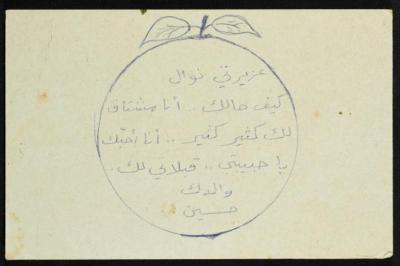 عزيزتي نوال
كيف حالك .. أنا مشتاق
لك كثير كثير .. أنا أحبّك
يا حبيبتي .. قبلاتي لك.
والدك
حسين